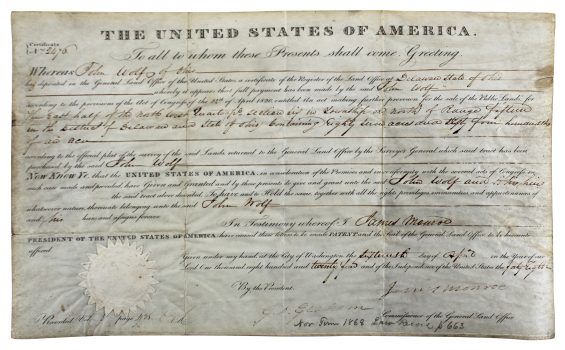 THE UNITED STATES OF AMERICA.
Certificate
No. 2476
To all to whom these Presents shall come, Greeting
Whereas John Wolf of Ohio
has deposited in the General Land Office of the United States, a certificate of the Register of the Land Office at Delaware State of Ohio
whereby it appears that full payment has been made by the said John Wolf
according to the provisions of the Act of Congress of the 24th of April 1820, entitled An act making further provision for the sale of the Public Lands, for
The East half of the north west quarter of section six in Township north of Range fifteen
in the District of Delaware and State of Ohio containing Eighty acres and fifty four hundredths
of an acre
according to the official plat of the survey of the said Lands returned to the General Land Office by the Surveyor General, which said tract has been
purchased by the said John Wolf
NOW KNOW YE, that the UNITED STATES OF AMERICA, in consideration of the Premises and in conformity with the several acts of Congress, in
such case made and provided, have Given and Granted and by these presents do give and grant unto the said John Wolf and to his heirs
the said tract above described: To have and to Hold the same, together with all the rights, privileges, immunities, and appurtenances of
whatsoever nature, thereunto belonging, unto the said John Wolf
and his heirs and assigns forever.
In Testimony whereof I James Monroe
PRESIDENT OF THE UNITED STATES OF AMERICA, have caused these letters to be made PATENT, and the Seal of the General Land Office to be hereunto
affixed.
Given under my hand at the City of Washington, the sixteenth day of April in the Year of our
Lord One thousand eight hundred and twenty four and of the Independence of the United States the forty eighth
By the President,
James Monroe
Commissioner of the General Land Office
Recorded Vol. page
663